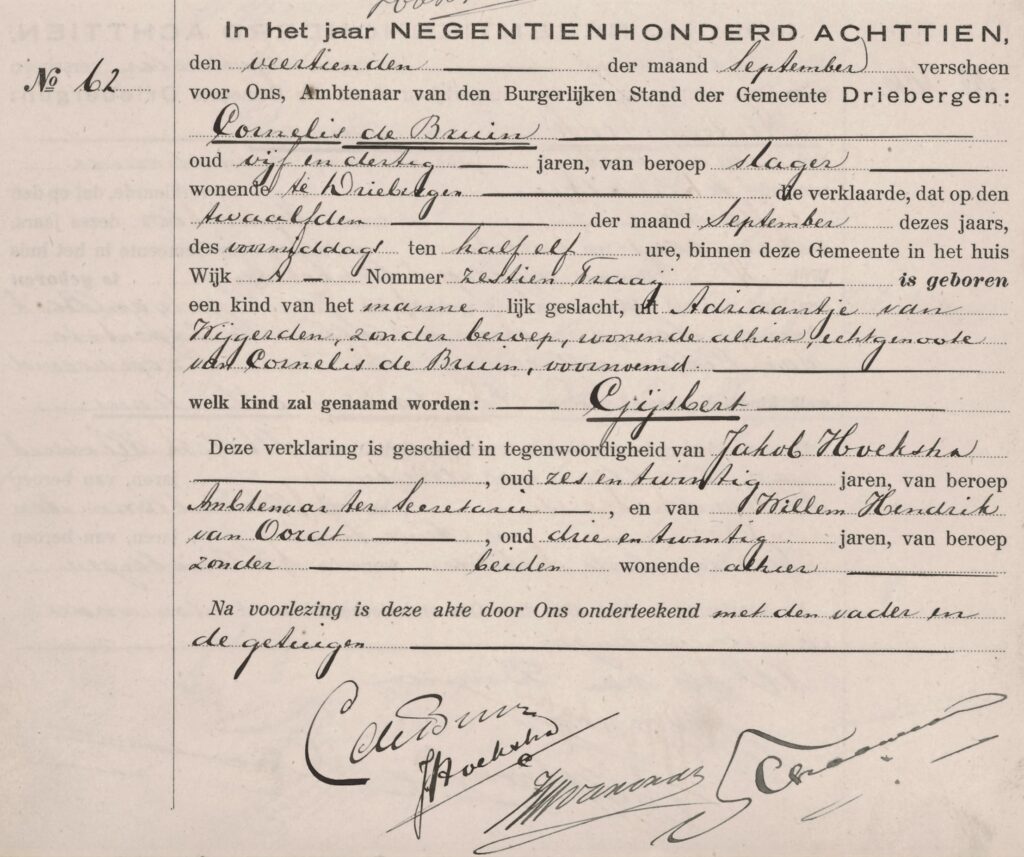 In het jaar NEGENTIENHONDERD ACHTTIEN,
№ 62
den veertienden der maand September verscheen
voor Ons, Ambtenaar van den Burgerlijken Stand der Gemeente Driebergen:
Cornelis de Bruin
oud vijf en dertig jaren, van beroep slager
wonende te Driebergen die verklaarde, dat op den
twaalfden der maand September dezes jaars,
des voormiddags ten half elf ure, binnen deze Gemeente in het huis
Wijk A Nommer zestien Traaij is geboren
een kind van het manne lijk geslacht, uit Adriaantje van
Wijgerden, zonder beroep, wonende alhier, echtgenoote
van Cornelis de Bruin, voornoemd.
welk kind zal genaamd worden: Gijsbert
Deze verklaring is geschied in tegenwoordigheid van Jakob Hoekstra
, oud zes en twintig jaren, van beroep
Ambtenaar ter Secretarie, en van Willem Hendrik
van Oordt, oud drie en twintig jaren, van beroep
zonder beiden wonende alhier
Na voorlezing is deze akte door Ons onderteekend met den vader en
de getuigen
C de Bruin
J Hoekstra
WHvanOordt